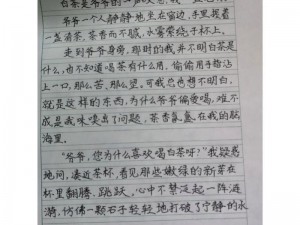 白茶是爷爷的一
爷爷一个人静静地坐在窗边，手里握着
一盏清茶，茶香而不腻，水雾萦绕于杯上，
走到爷爷身旁，那时的我并不明白茶是
什么，也不知道喝茶有什么用，偷偷用手指沾
上一口，那么苦，那么涩，可我总也想不明白，
就是这样的东西，为什么爷爷偏爱喝，难不
成是我味嗅出了问题，茶香氤氲在我的脑
海里。
“爷爷，您为什么喜欢喝白茶呀？”我疑惑
地问，凑近茶杯，看见那些嫩绿的新芽在
杯里翻腾、跳跃。心中不禁泛起一阵涟
漪，仿佛一颗石子轻轻地打破了宁静的水